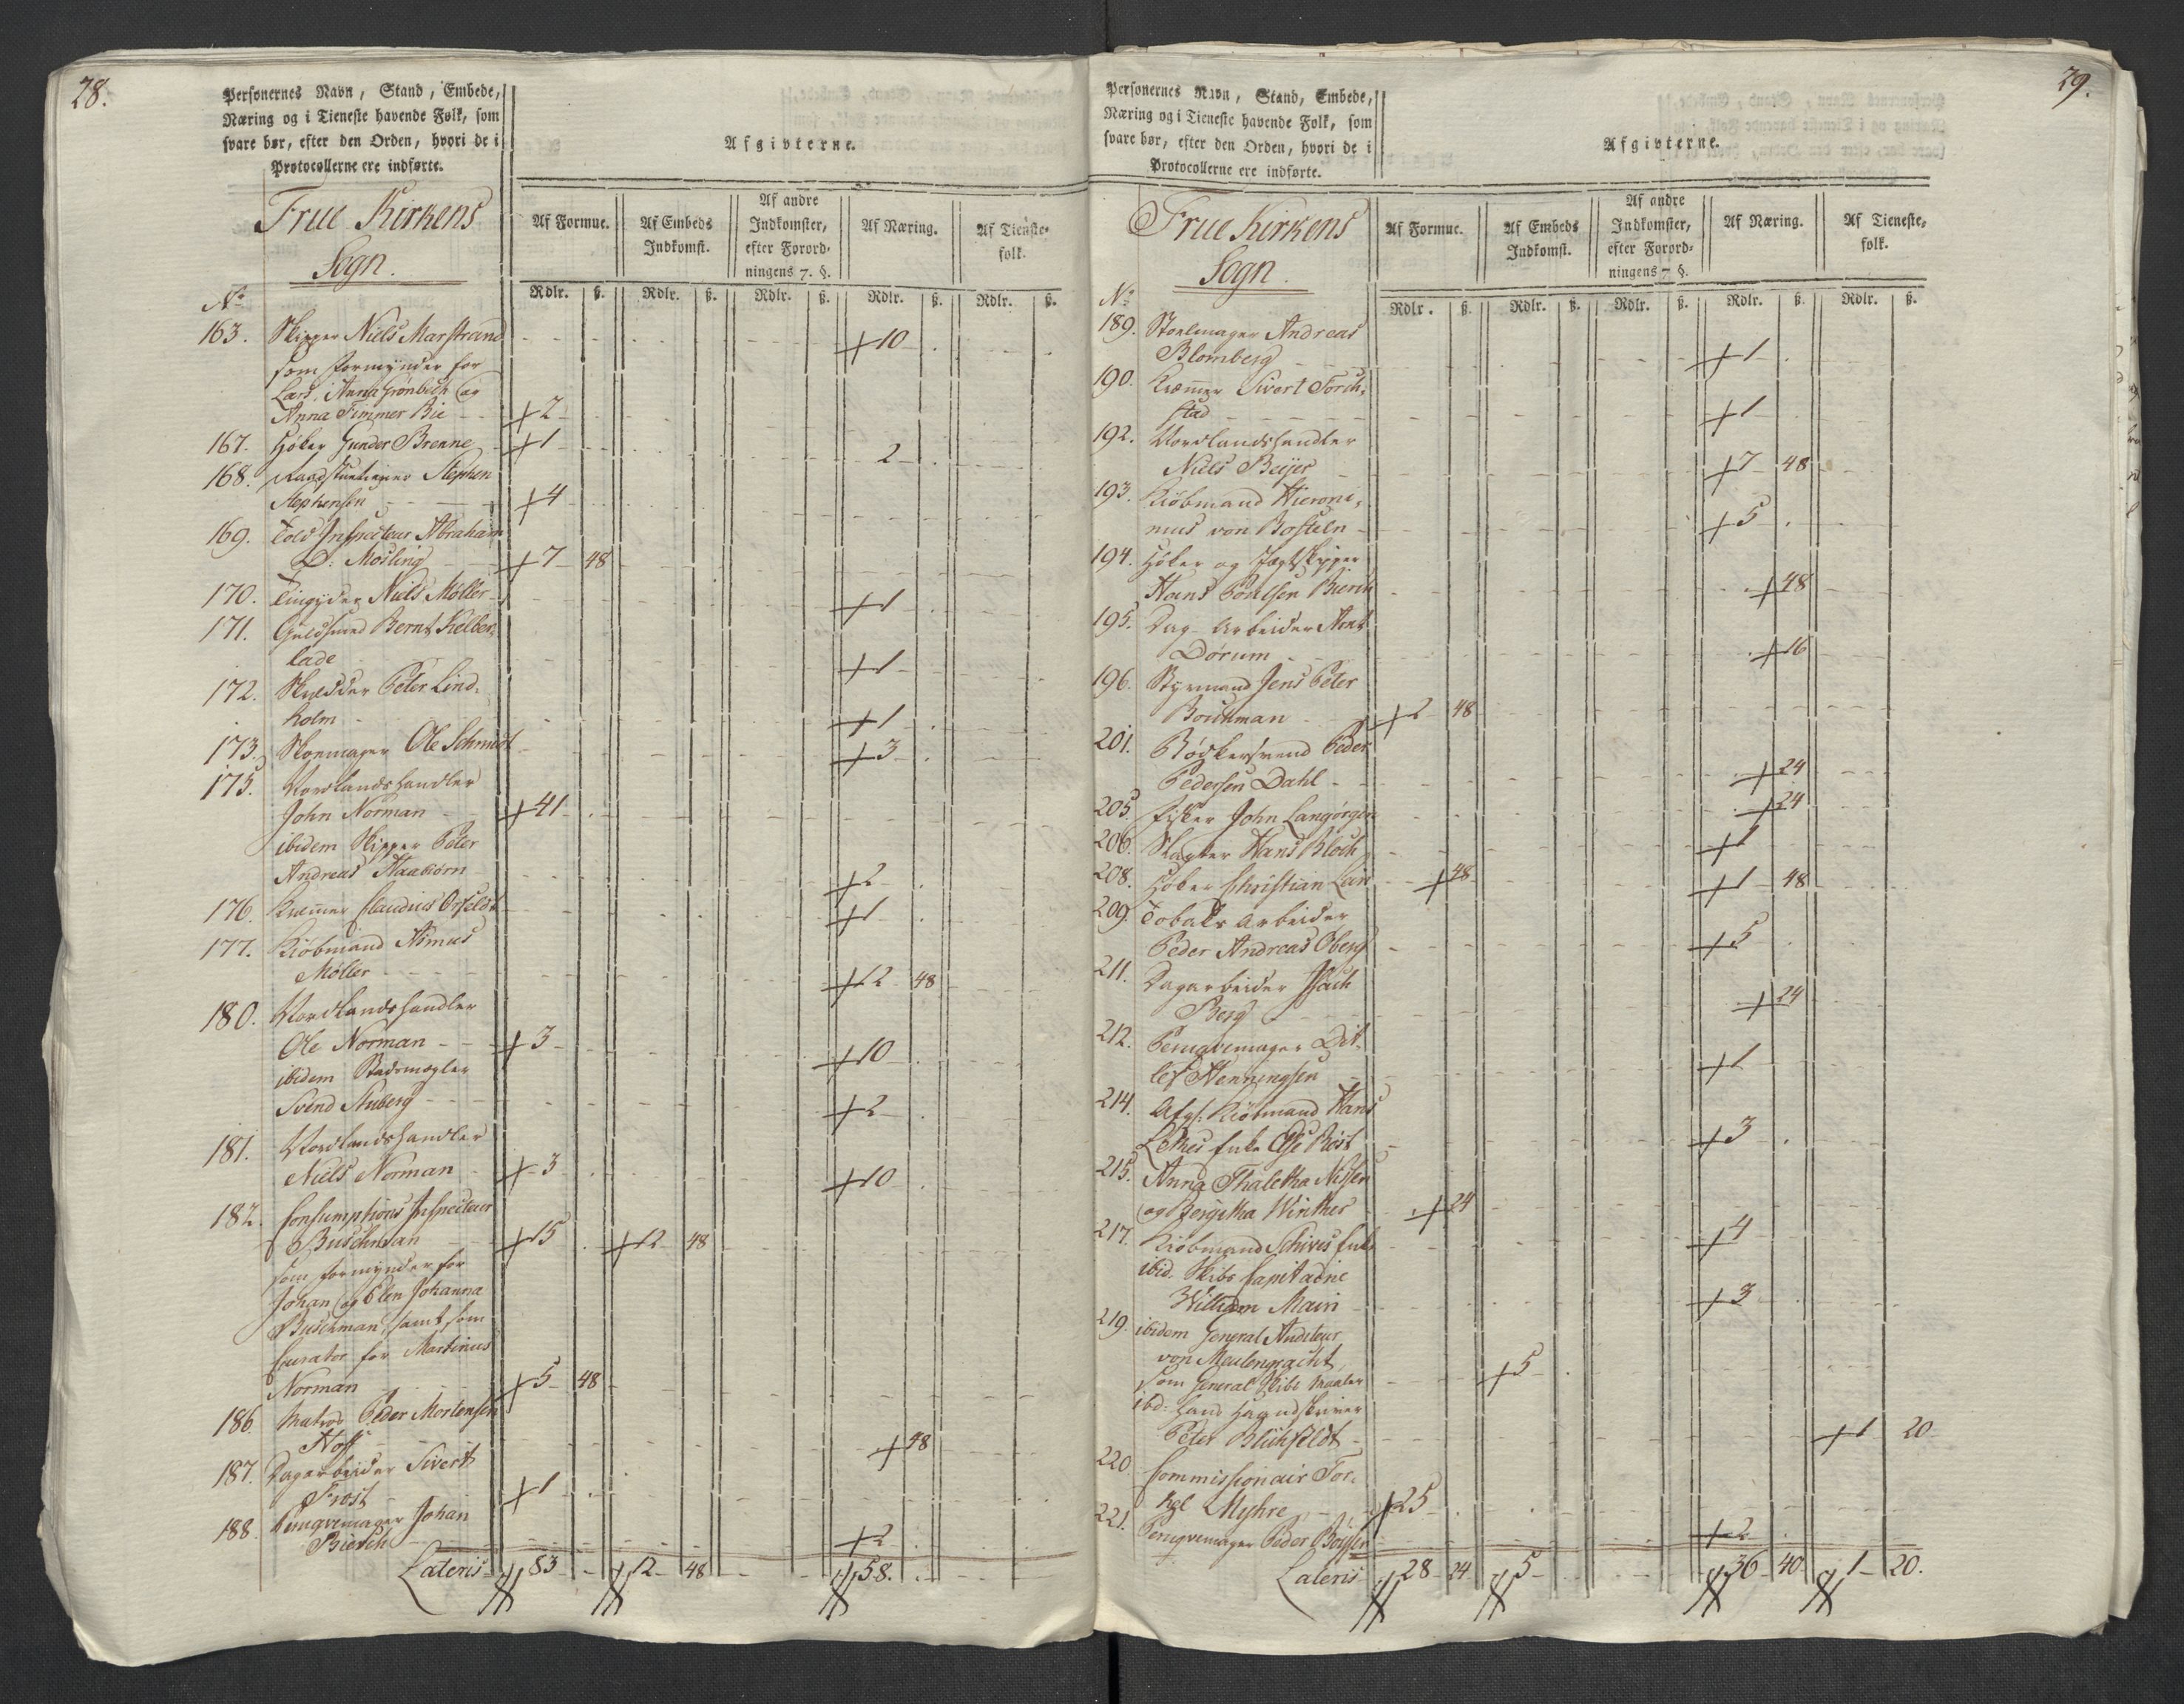 28.
Personernes Navn, Stand, Embede,
Næring og i Tieneste havende Folk, som
svare bør, efter den Orden, hvori de i
Protocollerne ere indførte.
Afgivterne.
Frue Kirkens
Sogn.
Af Formue.
Af Embeds
Indkomst.
Af andre
Indkomster,
efter Forord-
ningens 7. §.
Af Næring.
Af Tieneste-
folk.
No
Rdlr. ß. Rdlr. ß. Rdlr. ß. Rdlr. ß. Rdlr. ß.
163. Skipper Niels Marstrand 10
som Formynder for
Lars, Anna Grønbech og
Anna Timmer Bie 2
167. Høker Gunder Brenne 1 2
168. Stephen
Stephensen 4
169. Told Inspecteur Abraham
D. Mosling 7 48
170. Niels Møller 1
171. Guldsmed Bernt Kelber-
lade 1
172. Peter Lind-
holm 1
173. Skomager Ole Schmidt 3
175. Nordlandshandler
John Norman 41
ibidem Skipper Peter
Andreas Haabiørn 2
176. Kræmer Claudius Orfeldt 1
177. Kiøbmand Asmus
Møller 12 48
180. Nordlandshandler
Ole Norman 3 10
ibidem Stadsmægler
Svend Stuberg 2
181. Nordlandshandler
Niels Norman 3 10
182. Consumptions Inspecteur
Buschman 15 12 48
som formynder for
Johan og Elen Johanna
Buschman, samt som
Curator for Martinus
Norman 5 48
186. Matros Peder Mortensen
Hoff 48
187. Dagarbeider Sivert
Frost 1
188. Peruqvemager Johan
Biersch 2
Lateris 83 12 48 58.
29.
Personernes Navn, Stand, Embede,
Næring og i Tieneste havende Folk, som
svare bør, efter den Orden, hvori de i
Protocollerne ere indførte.
Afgivterne.
Frue Kirkens
Sogn.
Af Formue.
Af Embeds
Indkomst.
Af andre
Indkomster,
efter Forord-
ningens 7 §.
Af Næring.
Af Tieneste-
folk.
No
Rdlr. ß. Rdlr. ß. Rdlr. ß. Rdlr. ß. Rdlr. ß.
189. Stolmager Andreas
Blomberg 1
190. Kræmer Sivert Torch-
stad 1
192. Nordlandshandler
Niels Beijer 7 48
193. Kiøbmand Hieroni-
mus von Bosteln 5
194. Høker og Jægtskipper
Hans Poulsen Bierch 48
195. Dag-Arbeider Arnt
Dørum 16
196. Styrmand Jens Peter
Buschman 2 48
201. Bødkersvend Peder
Pedersen Dahl 24
205. Fisker John Langørgen 24
206. Slagter Hans Bloch 1
208. Høker Christian Lein 48 1 48
209. Tobaks Arbeider
Peder Andreas Oberg 5
211. Dagarbeider Isach
Berg 24
212. Peruqvemager Dit-
lef Henningsen 1
214. Afgl. Kiøbmand Hans
Lethes Enke Else Røst 3
215. Anna Thaletha Nissen
og Bergitha Winther 24
217. Kiøbmand Schives Enke 4
ibid. Skibs Capitaine
William Main 3
219. ibidem General Auditeur
von Meulengracht
som General Skibs Maaler 5
ibd: Hans Haandskriver
Peter Blichfeldt 1 20
220. Commissionair Tor-
kel Myhre 25
221. Peruqvemager Peder Boysen 2
Lateris 28 24 5 36 40 1 20.